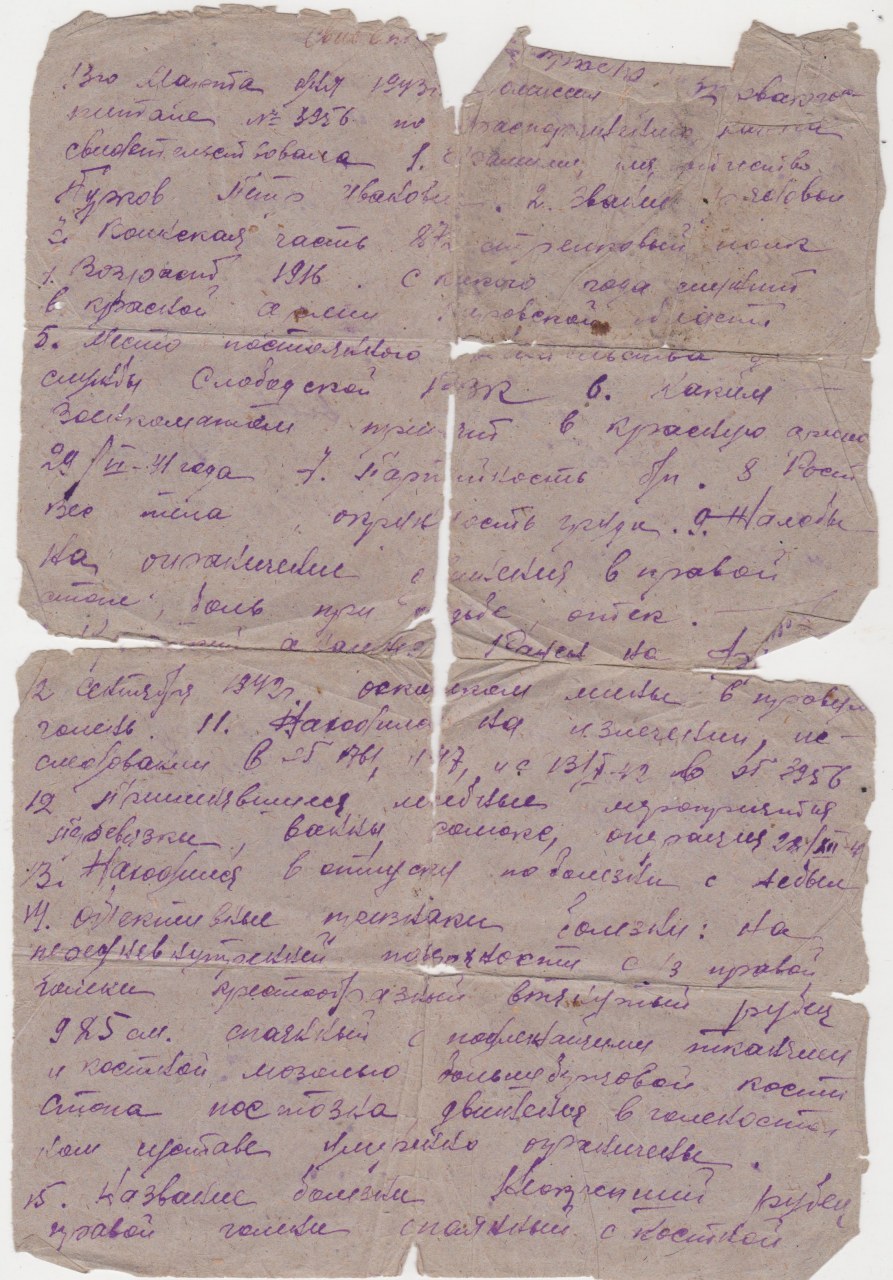 13го Марта дня 1943г омиссия эвакго-
питале № 3956 по распоряжению
свидетельствовала 1. Фамилия, имя, отчество
Пётр Иванови . 2. Звание рядовой
3. Воинская часть стрелковый полк
4. Возраст 1916. С какого года служит
в красной армии ировской области
5. Место постоянного жительства
службы Слободской РВК 6. Каким
Военкоматом призван в красную армию
29/VI-41 года 7. Партийность бп. 8 Рост
Вес тела , окружность груди. 9. Жалобы
на ограничение движения в правой
стопе, боль при ходьбе, отек.
Ранен на
12 сентября 1942г. осколком мины в правую
голень. 11. Находился на излечении, ис-
следовании в ЭГ 1761, и с 13/X-42 во ЭГ 3956
12 Применявшиеся лечебные мероприятия
Перевязки, ванны, операция 28/XII-4
13. Находился в отпуску по болезни с не был
14. Объективные признаки болезни: на
передневнутренней поверхности с/з правой
голени крестообразный втянутый рубец
9х5 см. спаянный с подлежащими тканями
и костной мозолью большеберцовой кости
Стопа пастозна движения в голеностоп
ном суставе умеренно ограничены.
15. Название болезни рубец
правой голени спаянный с костной.